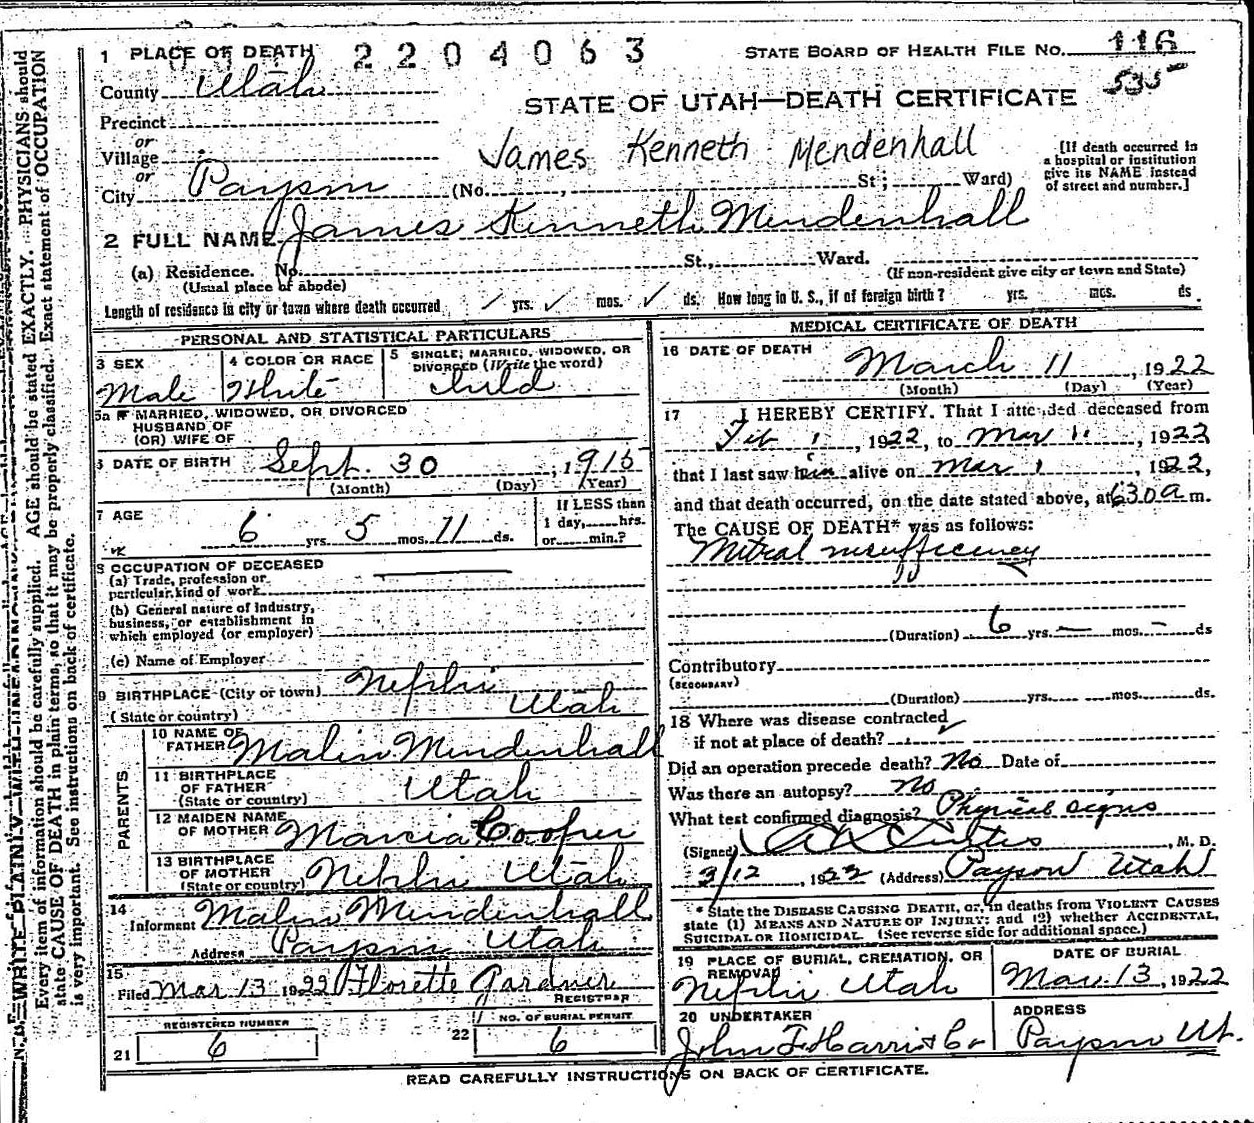 1 PLACE OF DEATH 2204063 STATE BOARD OF HEALTH FILE NO. 116
County Utah 535
STATE OF UTAH—DEATH CERTIFICATE
Precinct
or
Village James Kenneth Mendenhall
or
City Payson (No. , St; Ward)
[If death occurred in
a hospital or institution
give its NAME instead
of street and number.]
2 FULL NAME James Kenneth Mendenhall
(a) Residence. No. St., Ward.
(Usual place of abode) (If non-resident give city or town and State)
Length of residence in city or town where death occurred yrs. mos. ds. How long in U. S., if of foreign birth? yrs. mos. ds.
PERSONAL AND STATISTICAL PARTICULARS
3 SEX 4 COLOR OR RACE 5 SINGLE, MARRIED, WIDOWED, OR
DIVORCED (Write the word)
Male White Child
5a IF MARRIED, WIDOWED, OR DIVORCED
HUSBAND OF
(OR) WIFE OF
6 DATE OF BIRTH Sept. 30, 1915
(Month) (Day) (Year)
7 AGE If LESS than
1 day, hrs.
6 yrs. 5 mos. 11 ds. or min.?
8 OCCUPATION OF DECEASED
(a) Trade, profession or
particular kind of work
(b) General nature of industry,
business, or establishment in
which employed (or employer)
(c) Name of Employer
9 BIRTHPLACE (City or town) Nephi
(State or country) Utah
PARENTS
10 NAME OF
FATHER Malin Mendenhall
11 BIRTHPLACE
OF FATHER Utah
(State or country)
12 MAIDEN NAME
OF MOTHER Marcia Cooper
13 BIRTHPLACE
OF MOTHER Nephi Utah
(State or country)
14
Informent Malin Mendenhall
Address Payson Utah
15
Filed Mar 13 1922 Florette Gardner
REGISTRAR
REGISTERED NUMBER NO. OF BURIAL PERMIT
21 6 22 6
MEDICAL CERTIFICATE OF DEATH
16 DATE OF DEATH
March 11, 1922
(Month) (Day) (Year)
17 I HEREBY CERTIFY. That I attended deceased from
Feb 1, 1922, to Mar 11, 1922
that I last saw him alive on Mar 1, 1922,
and that death occurred, on the date stated above, at 630a m.
The CAUSE OF DEATH* was as follows:
Mitral insufficiency
(Duration) 6 yrs. — mos. — ds
Contributory
(SECONDARY)
(Duration) yrs. mos. ds.
18 Where was disease contracted
if not at place of death?
Did an operation precede death? No Date of
Was there an autopsy? No
What test confirmed diagnosis? Physical signs
(Signed) Curtis, M. D.
3/12, 1922 (Address) Payson Utah
* State the DISEASE CAUSING DEATH, or, in deaths from VIOLENT CAUSES
state (1) MEANS AND NATURE OF INJURY; and (2) whether ACCIDENTAL,
SUICIDAL OR HOMICIDAL. (See reverse side for additional space.)
19 PLACE OF BURIAL, CREMATION, OR
REMOVAL
Nephi Utah
DATE OF BURIAL
Mar. 13, 1922
20 UNDERTAKER
John F. Harris & Co
ADDRESS
Payson Ut.
READ CAREFULLY INSTRUCTIONS ON BACK OF CERTIFICATE.
Every item of information should be carefully supplied. AGE should be stated EXACTLY. PHYSICIANS should
state CAUSE OF DEATH in plain terms, so that it may be properly classified. Exact statement of OCCUPATION
is very important. See instructions on back of certificate.